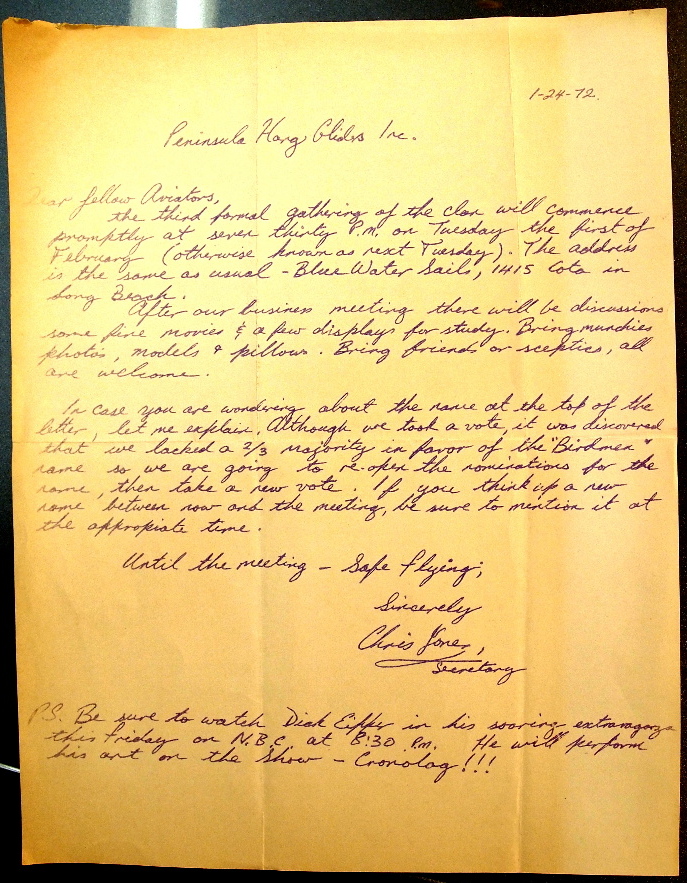 1-24-72.
Peninsula Hang Gliders Inc.
Dear fellow Aviators,
the third formal gathering of the clan will commence
promptly at seven thirty P.m. on Tuesday the first of
February (otherwise known as next Tuesday). The address
is the same as usual - Blue Water Sails, 1415 Cota in
Long Beach.
After our business meeting there will be discussions
some fine movies & a few displays for study. Bring munchies
photos, models & pillows. Bring friends or sceptics, all
are welcome.
In case you are wondering about the name at the top of the
letter, let me explain. Although we took a vote, it was discovered
that we lacked a 2/3 majority in favor of the "Birdmen"
name so we are going to re-open the nominations for the
name, then take a new vote. If you think up a new
name between now and the meeting, be sure to mention it at
the appropiate time.
Until the meeting - Safe flying;
Sincerely
Chris Jones,
Secretary
P.S. Be sure to watch Dick Eipper in his soaring extravaganza
this Friday on N.B.C. at 8:30 P.m. He will perform
his art on the show - Cronolog!!!